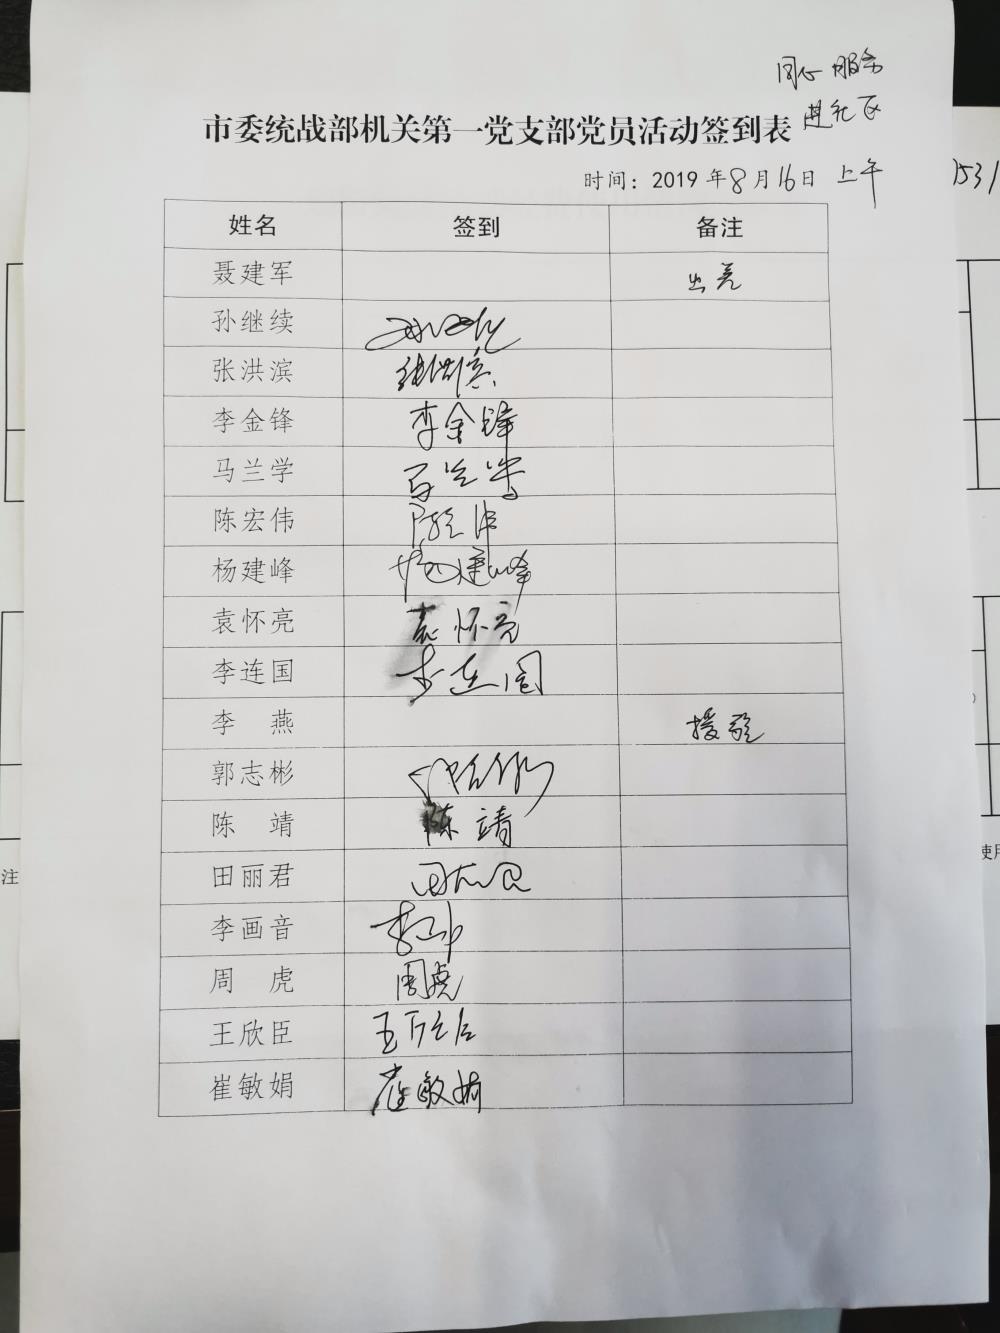 同心服务
进社区
市委统战部机关第一党支部党员活动签到表
时间：2019年8月16日 上午
1531
姓名 签到 备注
聂建军 出差
孙继续 孙继续
张洪滨 张洪滨
李金锋 李金锋
马兰学 马兰学
陈宏伟 陈宏伟
杨建峰 杨建峰
袁怀亮 袁怀亮
李连国 李连国
李 燕 援疆
郭志彬 郭志彬
陈 靖 陈靖
田丽君 田丽君
李画音
周 虎 周虎
王欣臣 王欣臣
崔敏娟 崔敏娟
注
使用